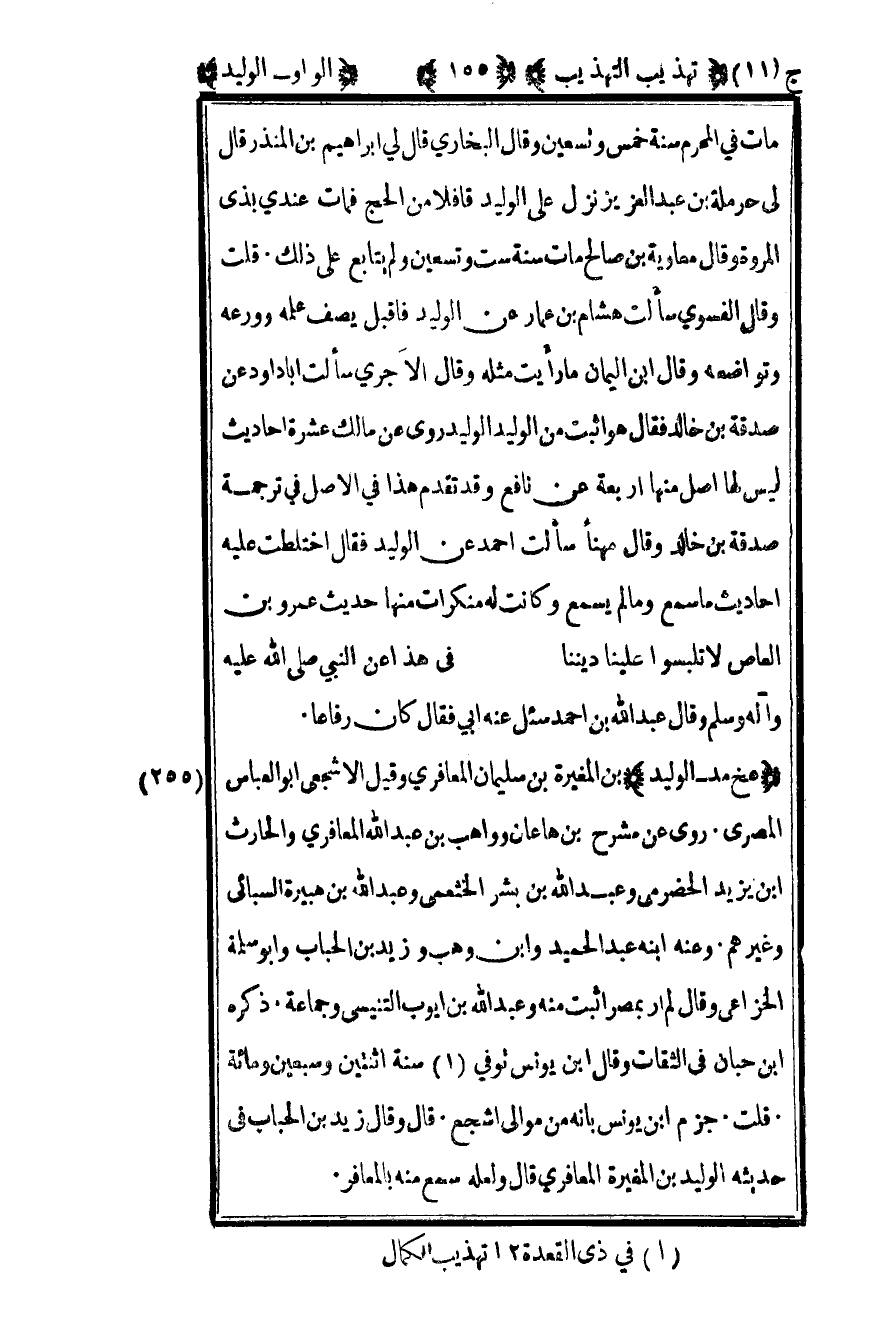 ج (١١) ﴿ تهذيب التهذيب ﴾ ﴿ ١٥٥ ﴾ ﴿ الواو ـ الوليد ﴾
مات في المحرم سنة خمس وتسعين وقال البخاري قال لي ابراهيم بن المنذر قال
لى حرملة بن عبد العزيز نزل على الوليد قافلا من الحج فمات عندي بذى
المروة وقال معاوية بن صالح مات سنة ست وتسعين ولم يتابع على ذلك · قلت
وقال الفسوي سألت هشام بن عمار عن الوليد فاقبل يصف علمه وورعه
وتواضعه وقال ابن اليمان مارأيت مثله وقال الآجري سألت اباداود عن
صدقة بن خالد فقال هو اثبت من الوليد الوليد روى عن مالك عشرة احاديث
ليس لها اصل منها اربعة عن نافع وقد تقدم هذا في الاصل في ترجمة
صدقة بن خالد وقال مهنأ سألت احمد عن الوليد فقال اختلطت عليه
احاديث ماسمع ومالم يسمع وكانت له منكرات منها حديث عمرو بن
العاص لا تلبسوا علينا ديننا فى هذا عن النبي صلى الله عليه
وآله وسلم وقال عبدالله بن احمد سئل عنه ابي فقال كان رفاعا ·
﴿ عخ مد ـ الوليد ﴾ بن المغيرة بن سليمان المعافري وقيل الاشجعى ابو العباس (٢٥٥)
المصرى · روى عن مشرح بن هاعان وواهب بن عبدالله المعافري والحارث
ابن يزيد الحضرمى وعبدالله بن بشر الخثعمى وعبدالله بن هبيرة السبائى
وغيرهم · وعنه ابنه عبد الحميد وابن وهب وزيد بن الحباب وابو سلمة
الخزاعى وقال لم ار بمصر اثبت منه وعبدالله بن ايوب التنيسى وجماعة · ذكره
ابن حبان فى الثقات وقال ابن يونس توفي (١) سنة اثنتين وسبعين ومائة
· قلت · جزم ابن يونس بانه من موالى اشجع · قال وقال زيد بن الحباب فى
حديثه الوليد بن المغيرة المعافري قال ولعله سمع منه بالمعافر ·
(١) في ذى القعدة ١٢ تهذيب الكمال